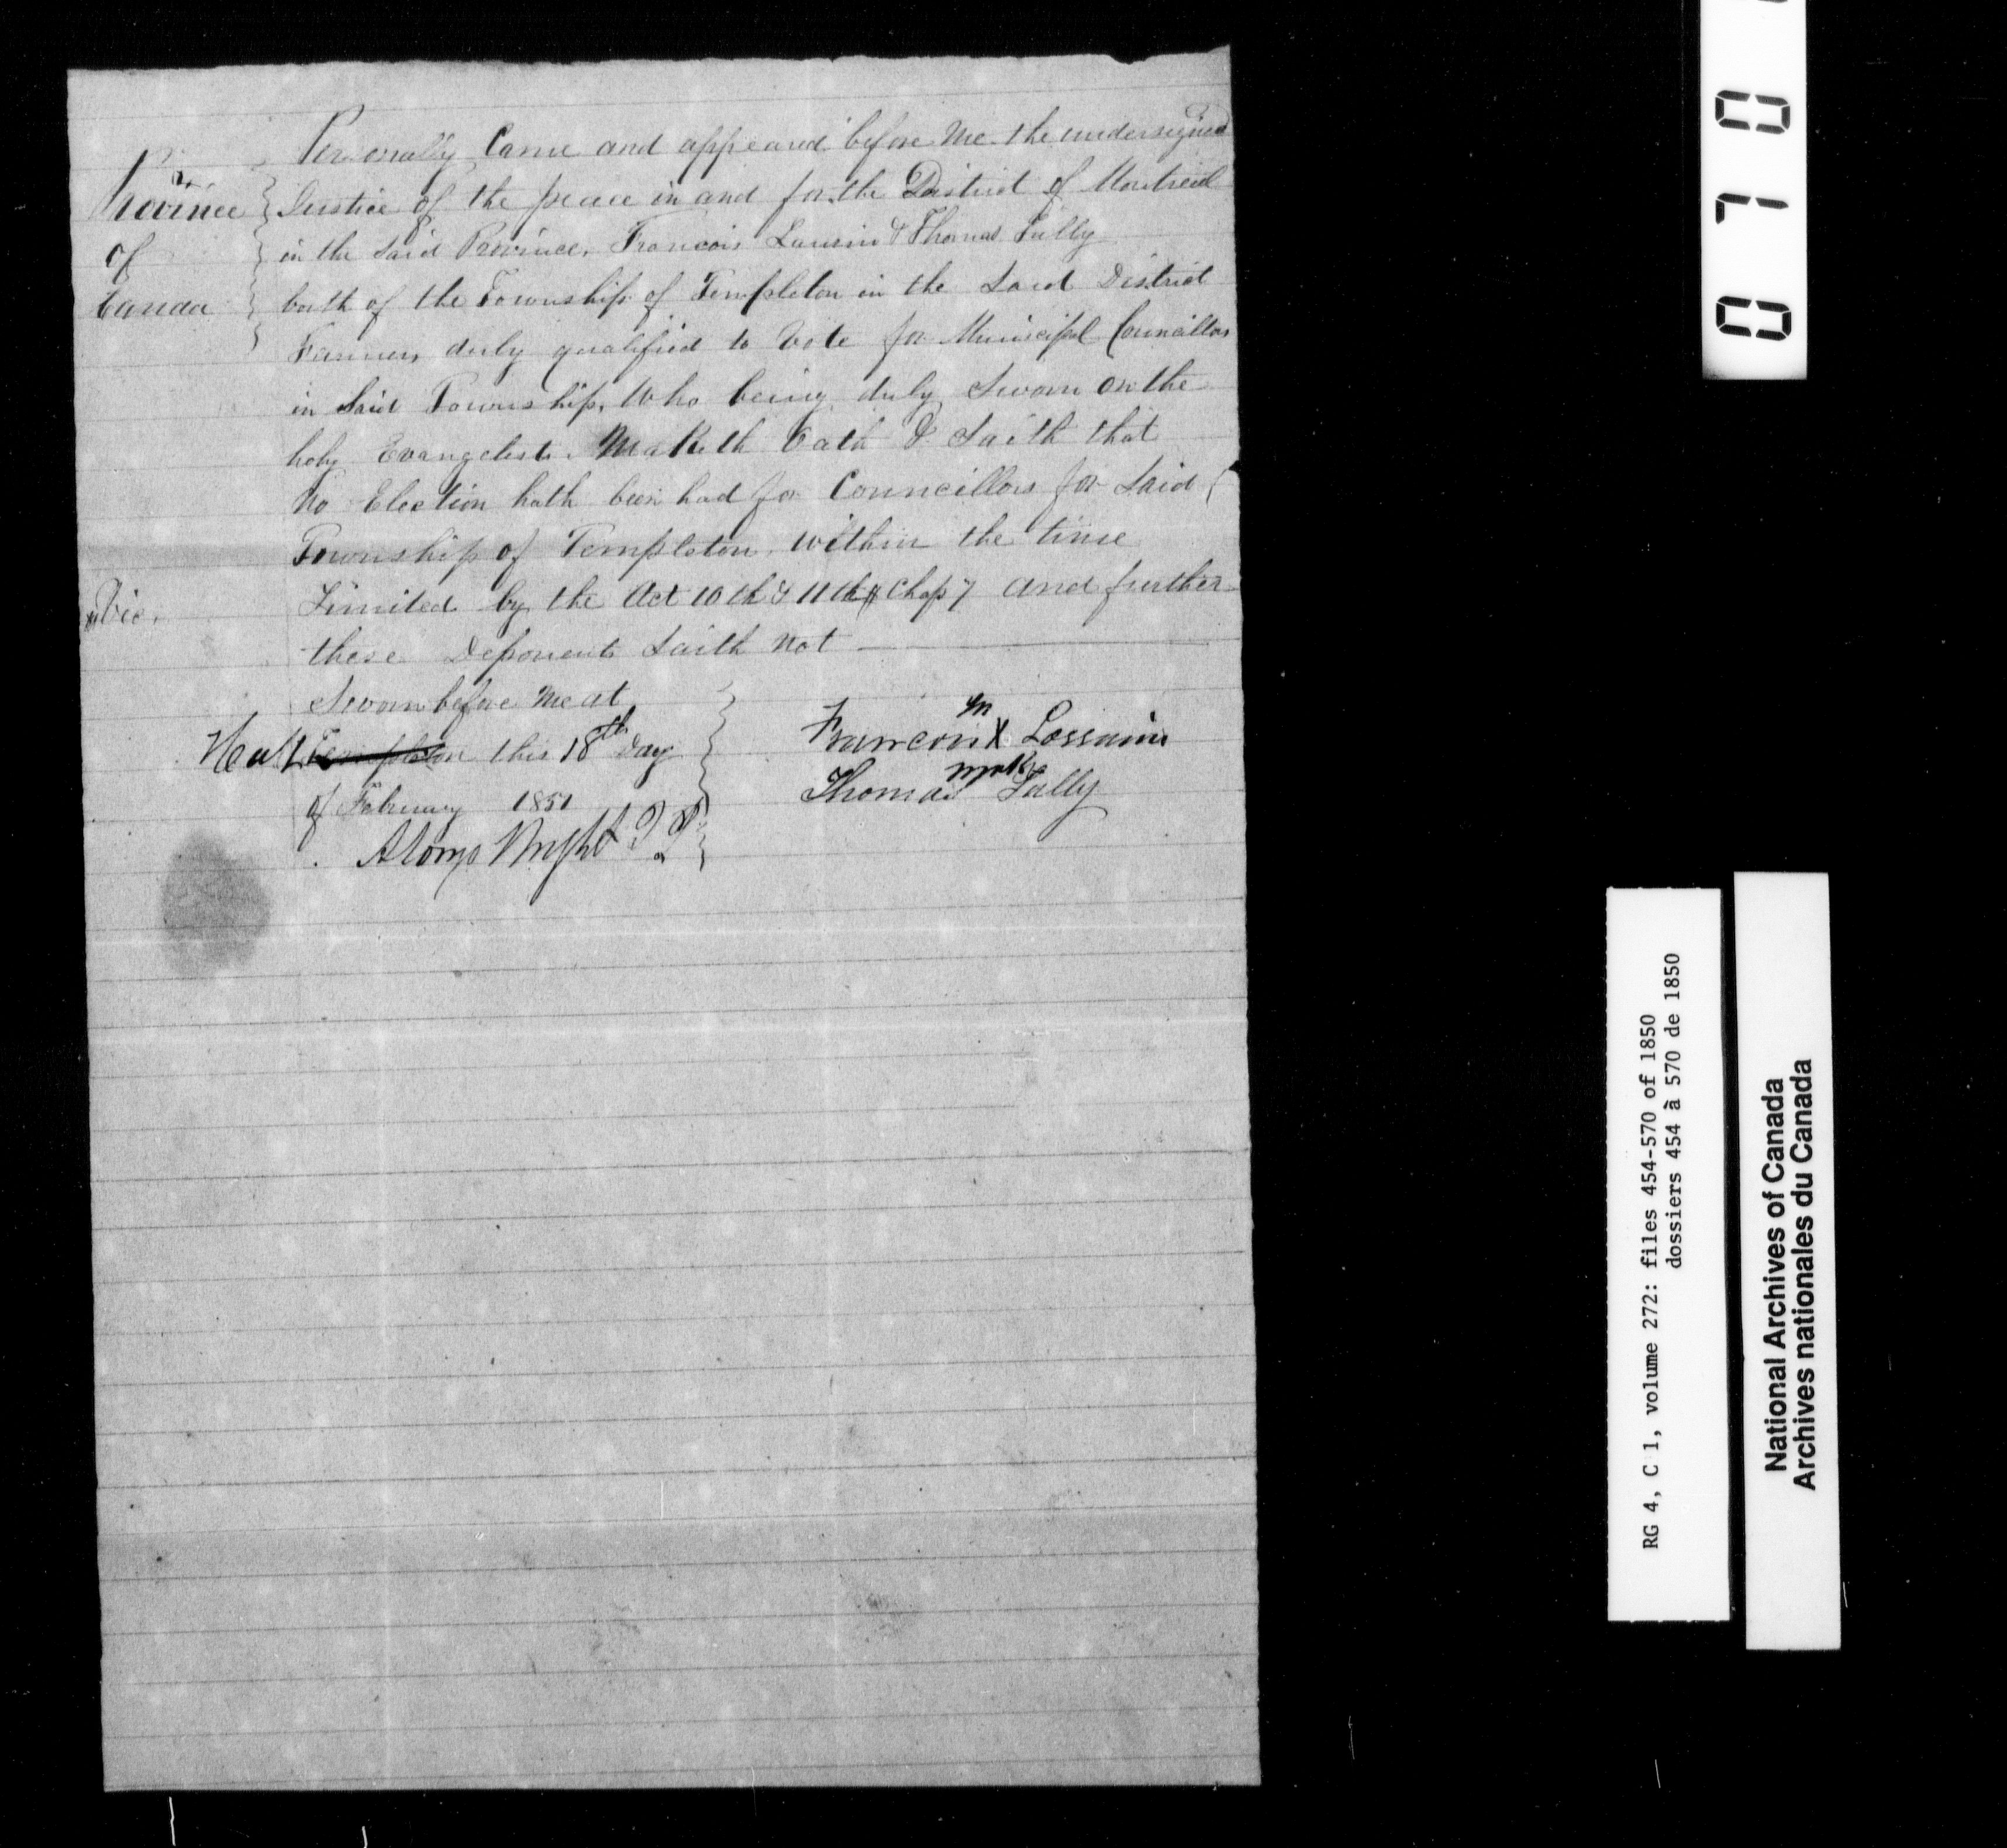 Personally Came and appeared before Me the undersigned
Province
of
Canda
Justice of the peace in and for the District of Montreal
in the Said Province, Francois Lausin & Thomas Tully
both of the Township of Templeton in the Said District
Farmers duly qualified to Vote for Municipal Councillors
in Said Township, Who being duly Sworn on the
holy Evangelists Maketh Oath & Saith that
No Election hath been had for Councillors for Said
Township of Templeton within the time
Limited by the Act 10th & 11th Chap 7 and further
Vic.
these Deponents Saith Not
Sworn before Me at
Hull Templeton this 18th Day
of February 1851
Alonzo Wright J.P.
Francois X Lorrain
mark
Thomas Tully
0 7 0
RG 4, C 1, volume 272: files 454-570 of 1850
dossiers 454 à 570 de 1850
National Archives of Canada
Archives nationales du Canada